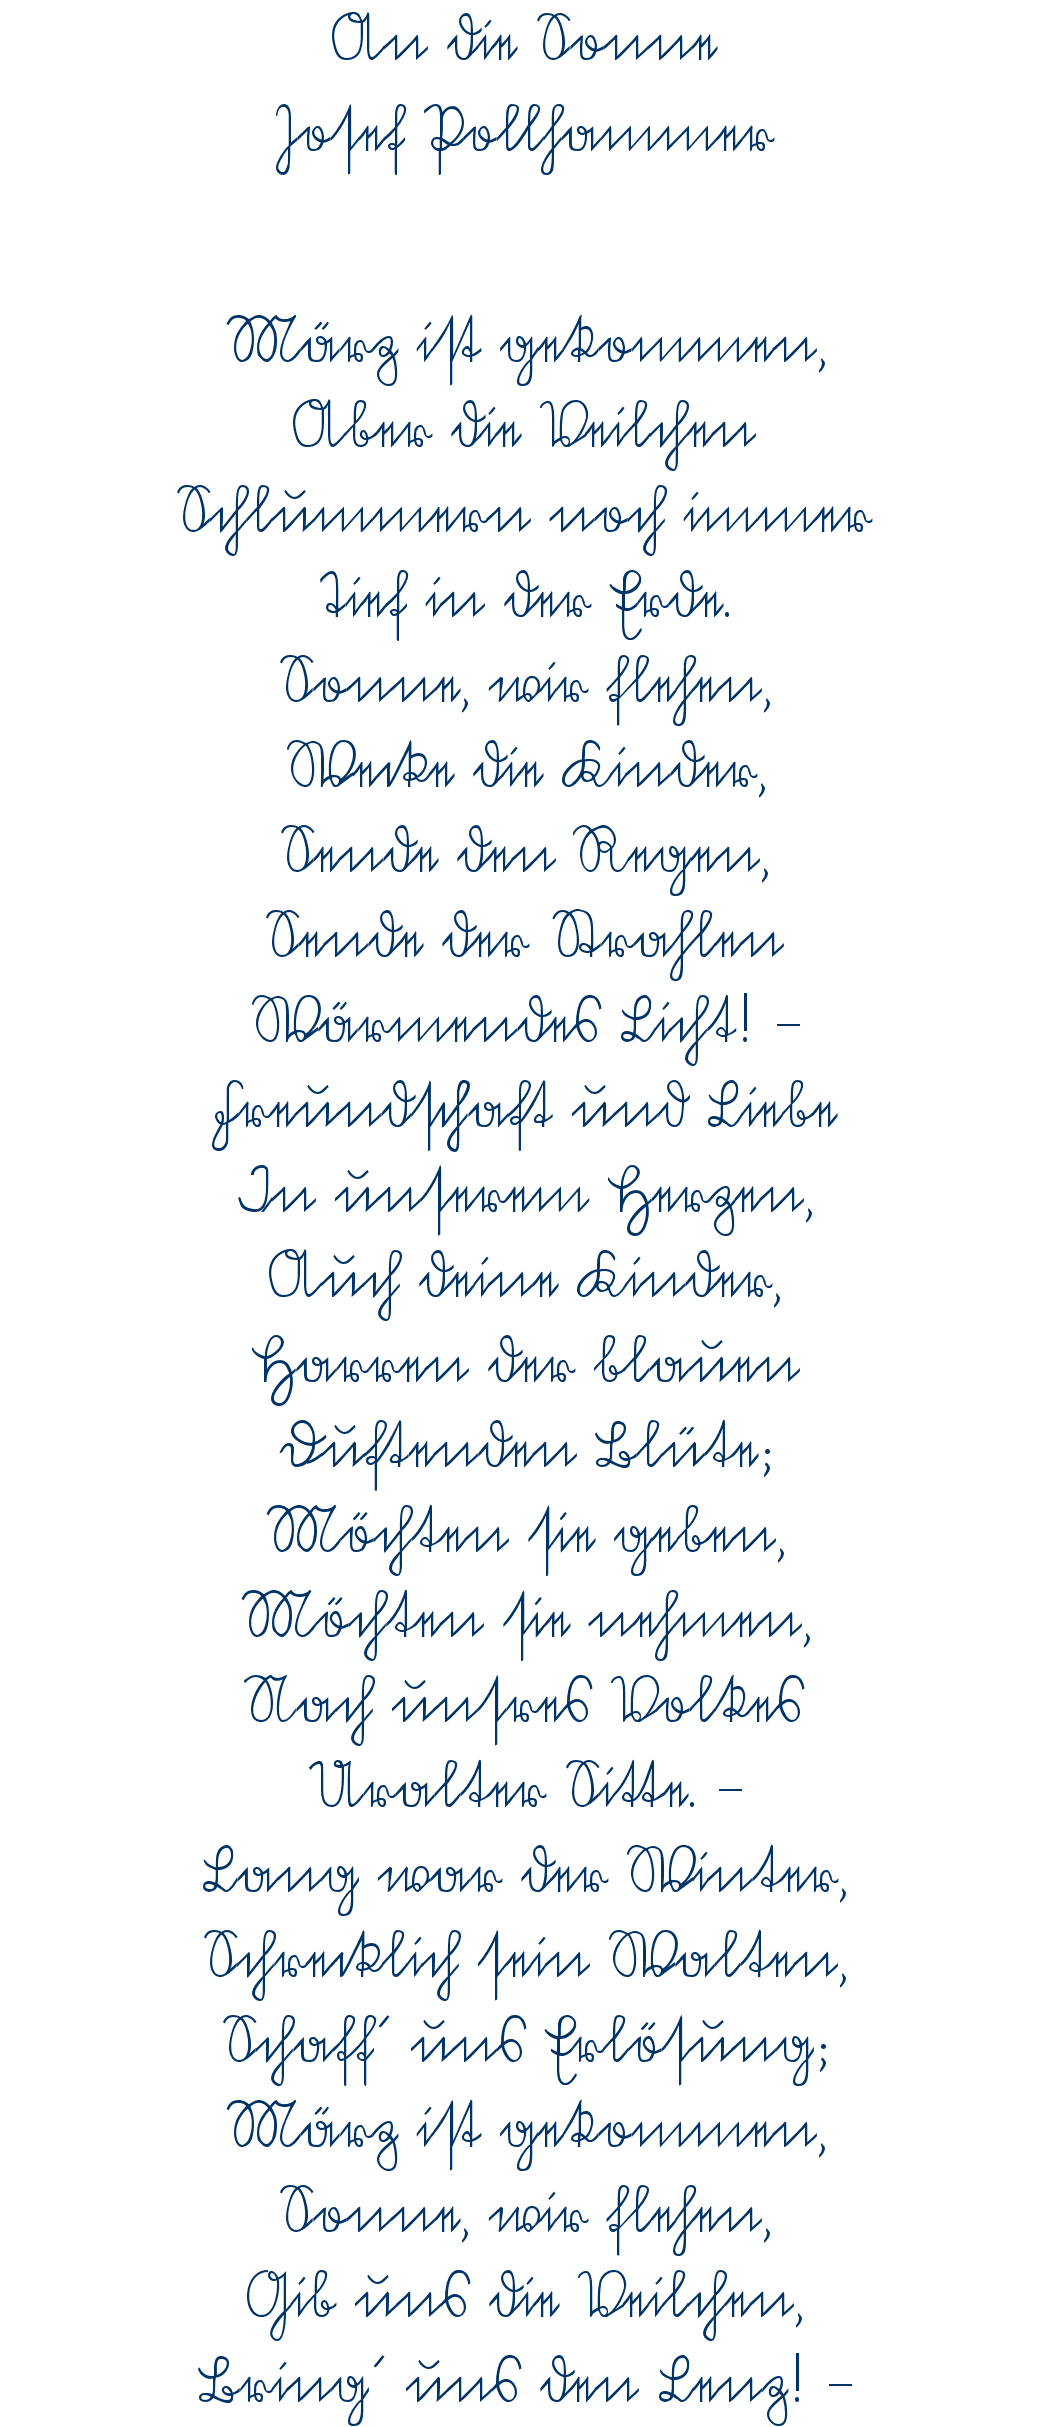 An die Sonne
Josef Pollhammer
März ist gekommen,
Aber die Veilchen
Schlummern noch immer
Tief in der Erde.
Sonne, wir flehen,
Wecke die Kinder,
Sende den Regen,
Sende der Strahlen
Wärmendes Licht! –
Freundschaft und Liebe
In unserem Herzen,
Auch deine Kinder,
Harren der blauen
Duftenden Blüte;
Möchten sie geben,
Möchten sie nehmen,
Nach unsres Volkes
Uralter Sitte. –
Lang war der Winter,
Schrecklich sein Walten,
Schaff´ uns Erlösung;
März ist gekommen,
Sonne, wir flehen,
Gib uns die Veilchen,
Bring´ uns den Lenz! –